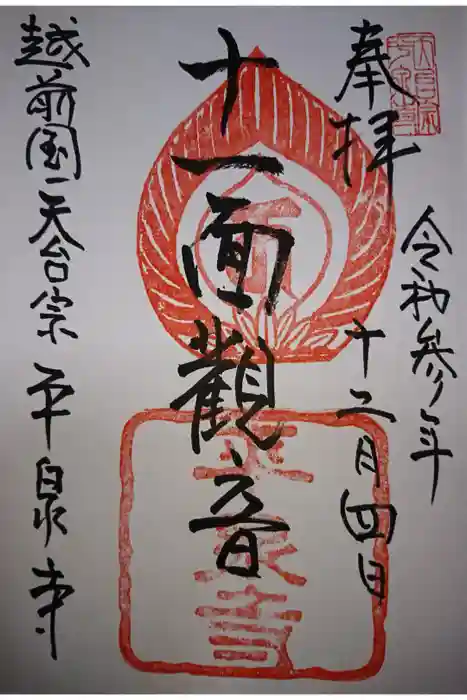 奉拝
令和参年
十二月四日
十一面観音
越前国天台宗平泉寺
平泉寺